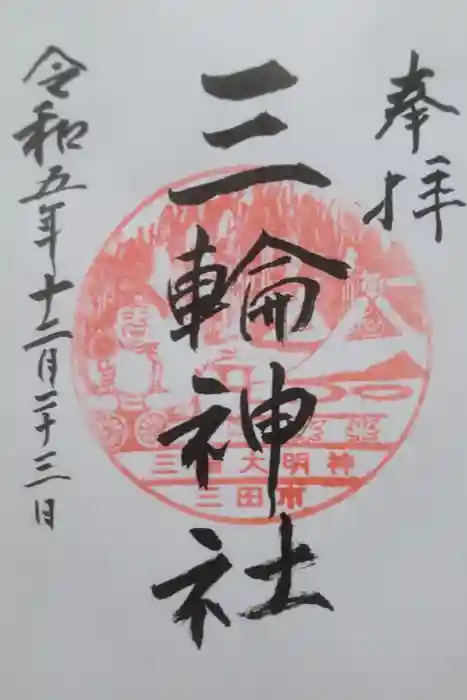 奉拝
三輪神社
令和五年十二月二十三日
三輪大明神
三田市